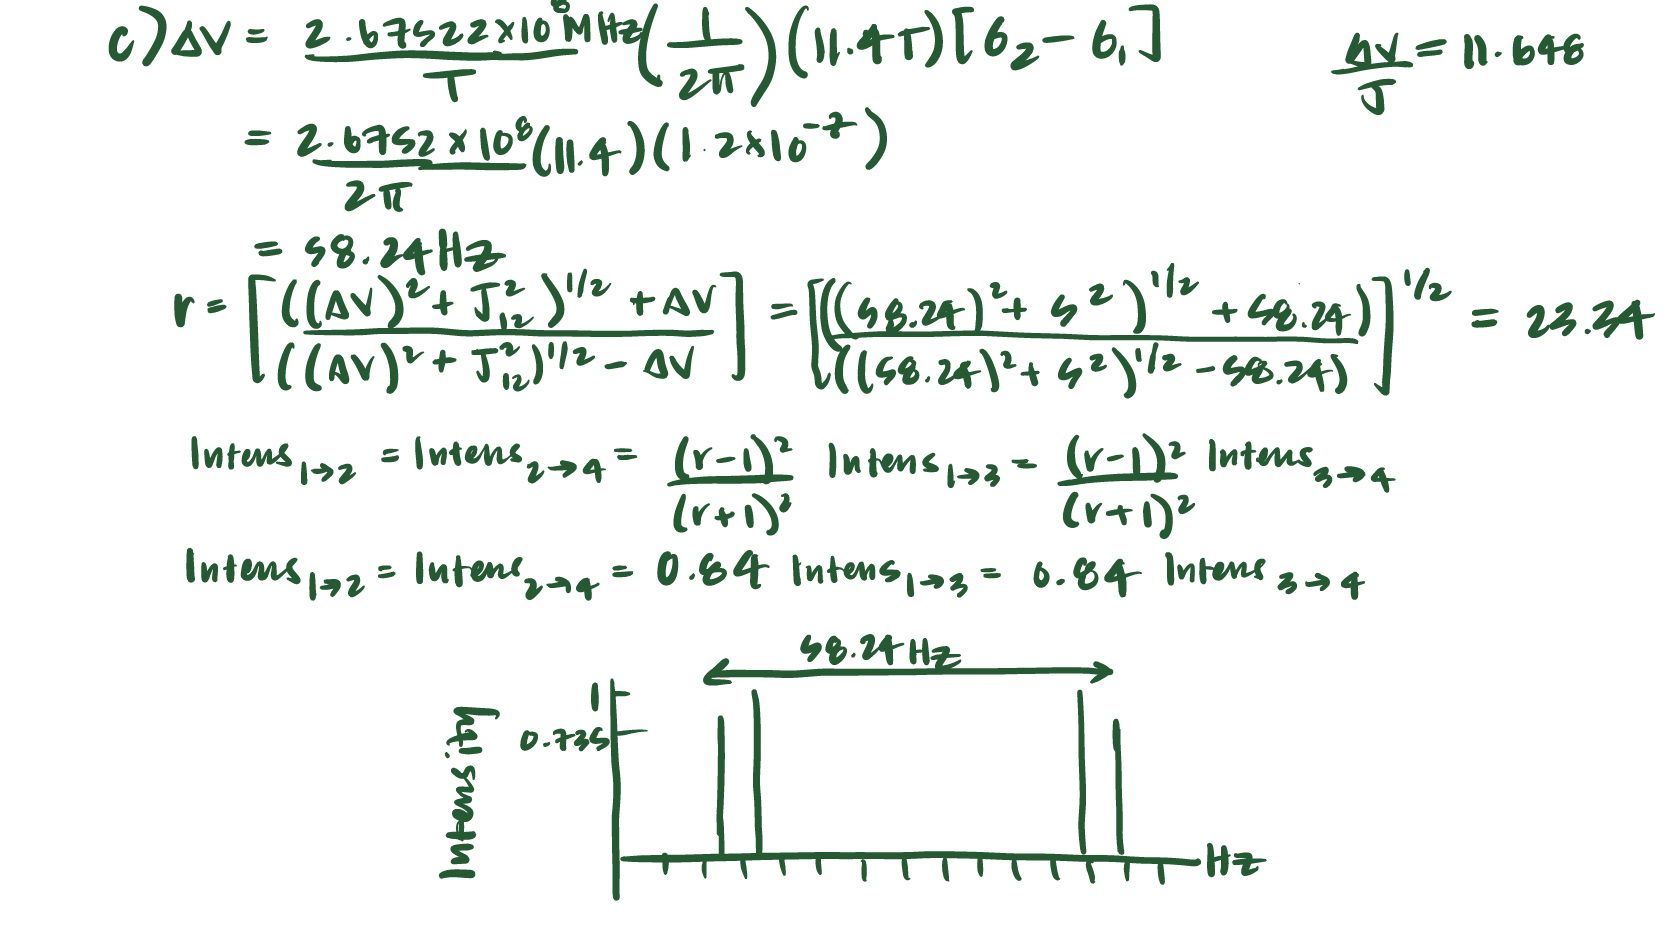 c) ΔV = 2.67522×10⁸ MHz/T (1/2π) (11.4T) [6₂ − 6₁]
ΔV/J = 11.648
= 2.6752 × 10⁸/2π (11.4) (1.2×10⁻⁷)
= 58.24 Hz
r = [((ΔV)² + J₁₂²)^1/2 + ΔV / ((ΔV)² + J₁₂²)^1/2 − ΔV] = [((58.24)² + 5²)^1/2 + 58.24) / (((58.24)² + 5²)^1/2 − 58.24)]^1/2 = 23.34
Intens 1→2 = Intens 2→4 = (r−1)²/(r+1)² Intens 1→3 = (r−1)²/(r+1)² Intens 3→4
Intens 1→2 = Intens 2→4 = 0.84 Intens 1→3 = 0.84 Intens 3→4
58.24 Hz
1
0.735
Intensity
Hz